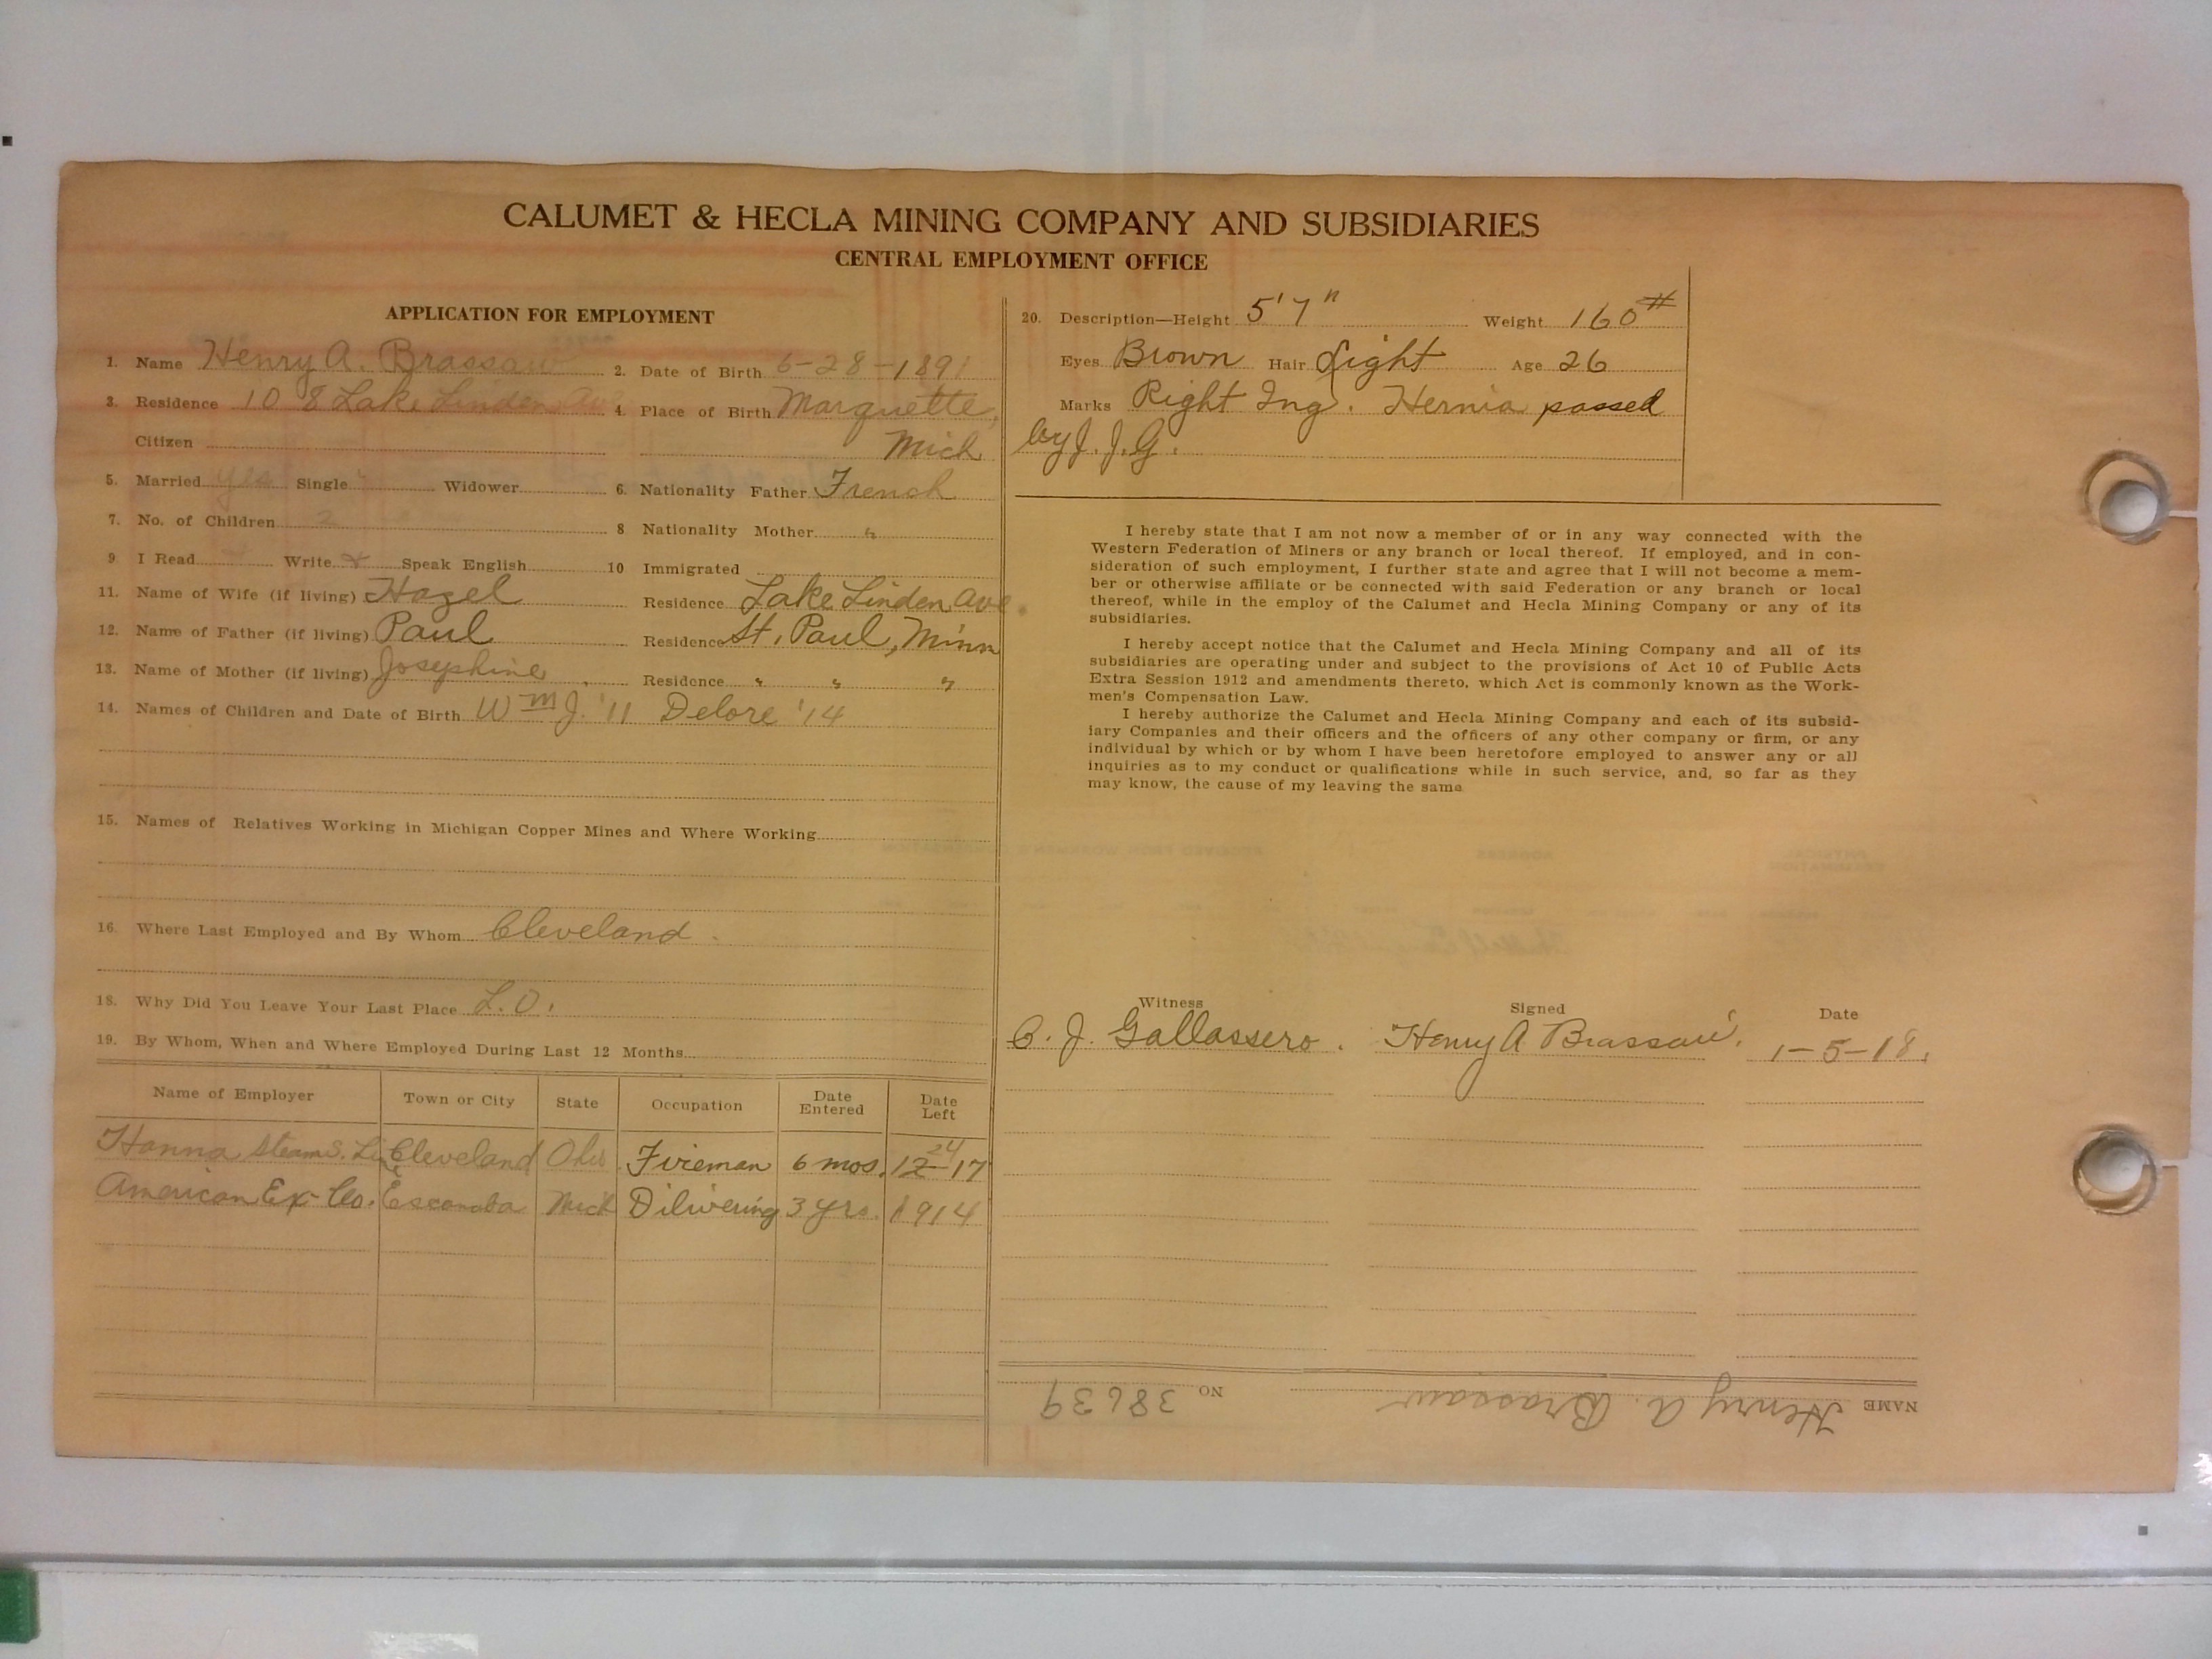 CALUMET & HECLA MINING COMPANY AND SUBSIDIARIES
CENTRAL EMPLOYMENT OFFICE
APPLICATION FOR EMPLOYMENT
1. Name Henry A. Brassaw 2. Date of Birth 6-28-1891
3. Residence 108 Lake Linden Ave 4. Place of Birth Marquette,
Citizen Mich
5. Married Yes Single Widower 6. Nationality Father French
7. No. of Children 2 8 Nationality Mother "
9. I Read Write x Speak English 10 Immigrated
11. Name of Wife (if living) Hazel Residence Lake Linden Ave.
12. Name of Father (if living) Paul Residence St. Paul, Minn
13. Name of Mother (if living) Josephine Residence " " "
14. Names of Children and Date of Birth Wm J. '11 Delore '14
15. Names of Relatives Working in Michigan Copper Mines and Where Working
16. Where Last Employed and By Whom Cleveland.
18. Why Did You Leave Your Last Place L.O.
19. By Whom, When and Where Employed During Last 12 Months
Name of Employer Town or City State Occupation Date Entered Date Left
Hanna Steam S. Line Cleveland Ohio Fireman 6 mos. 12-24-17
American Ex- Co. Escanaba Mich Dilivering 3 yrs. 1914
20. Description—Height 5'7" Weight 160#
Eyes Brown Hair Light Age 26
Marks Right Ing. Hernia passed
by J. J. G.
I hereby state that I am not now a member of or in any way connected with the
Western Federation of Miners or any branch or local thereof. If employed, and in con-
sideration of such employment, I further state and agree that I will not become a mem-
ber or otherwise affiliate or be connected with said Federation or any branch or local
thereof, while in the employ of the Calumet and Hecla Mining Company or any of its
subsidiaries.
I hereby accept notice that the Calumet and Hecla Mining Company and all of its
subsidiaries are operating under and subject to the provisions of Act 10 of Public Acts
Extra Session 1912 and amendments thereto, which Act is commonly known as the Work-
men's Compensation Law.
I hereby authorize the Calumet and Hecla Mining Company and each of its subsid-
iary Companies and their officers and the officers of any other company or firm, or any
individual by which or by whom I have been heretofore employed to answer any or all
inquiries as to my conduct or qualifications while in such service, and, so far as they
may know, the cause of my leaving the same
Witness Signed Date
C. J. Gallassero. Henry A Brassaw. 1-5-18.
NAME Henry A. Brassaw NO 38639